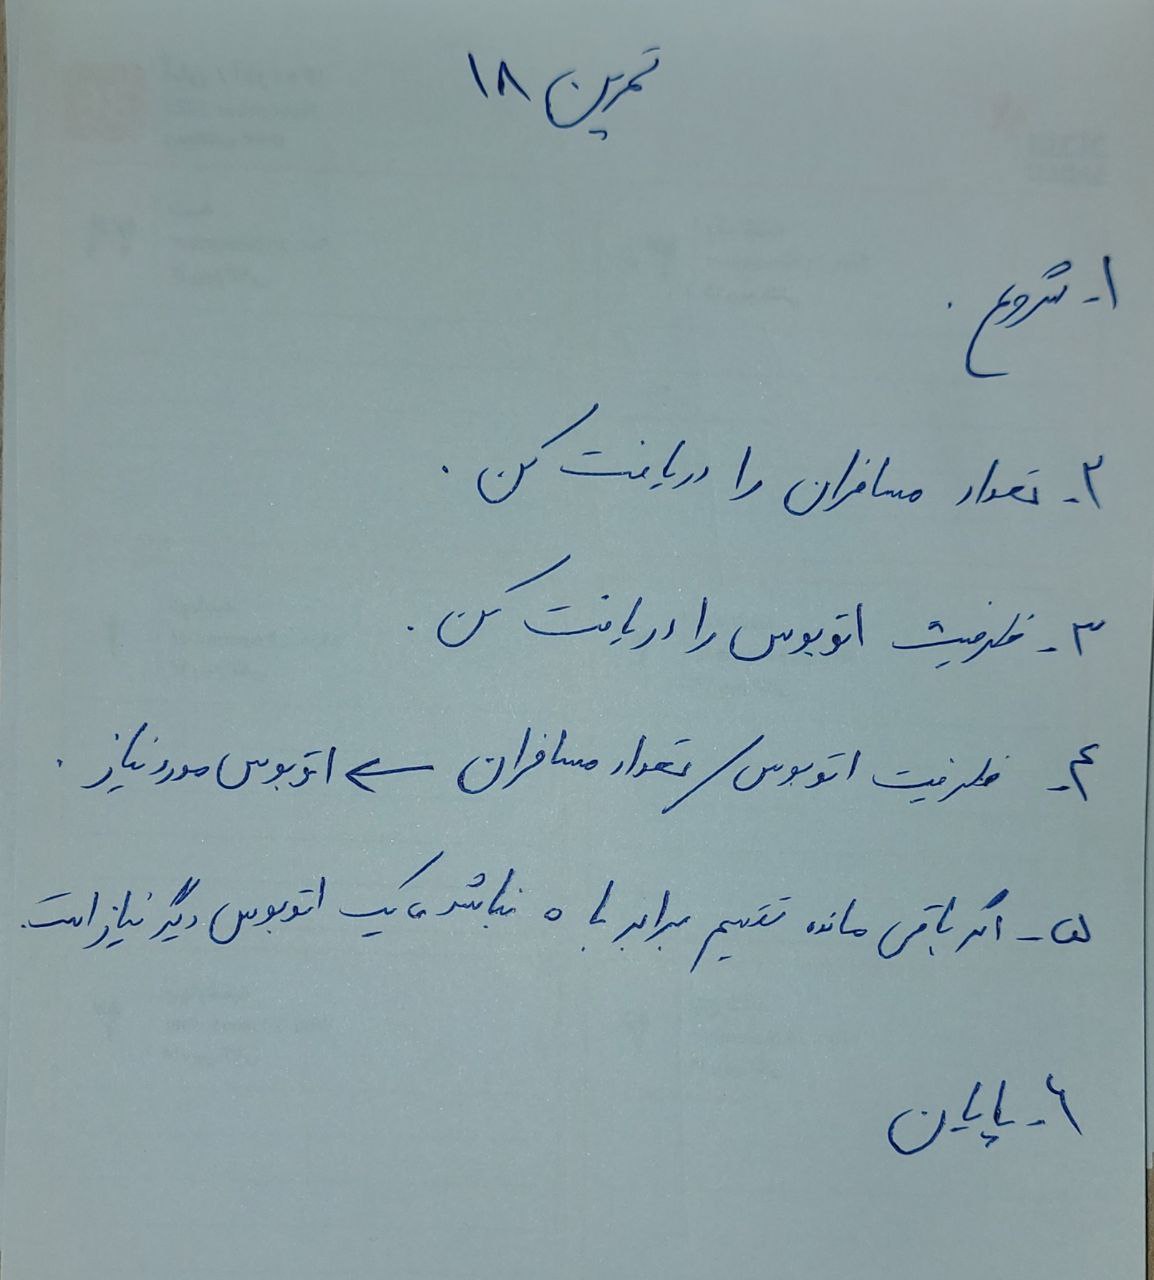 تمرین ۱۸
۱- شروع .
۲- تعداد مسافران را دریافت کن .
۳- ظرفیت اتوبوس را دریافت کن .
۴- ظرفیت اتوبوس / تعداد مسافران ← اتوبوس مورد نیاز .
۵- اگر باقی مانده تقسیم برابر با ۰ نباشد، یک اتوبوس دیگر نیاز است.
۶- پایان